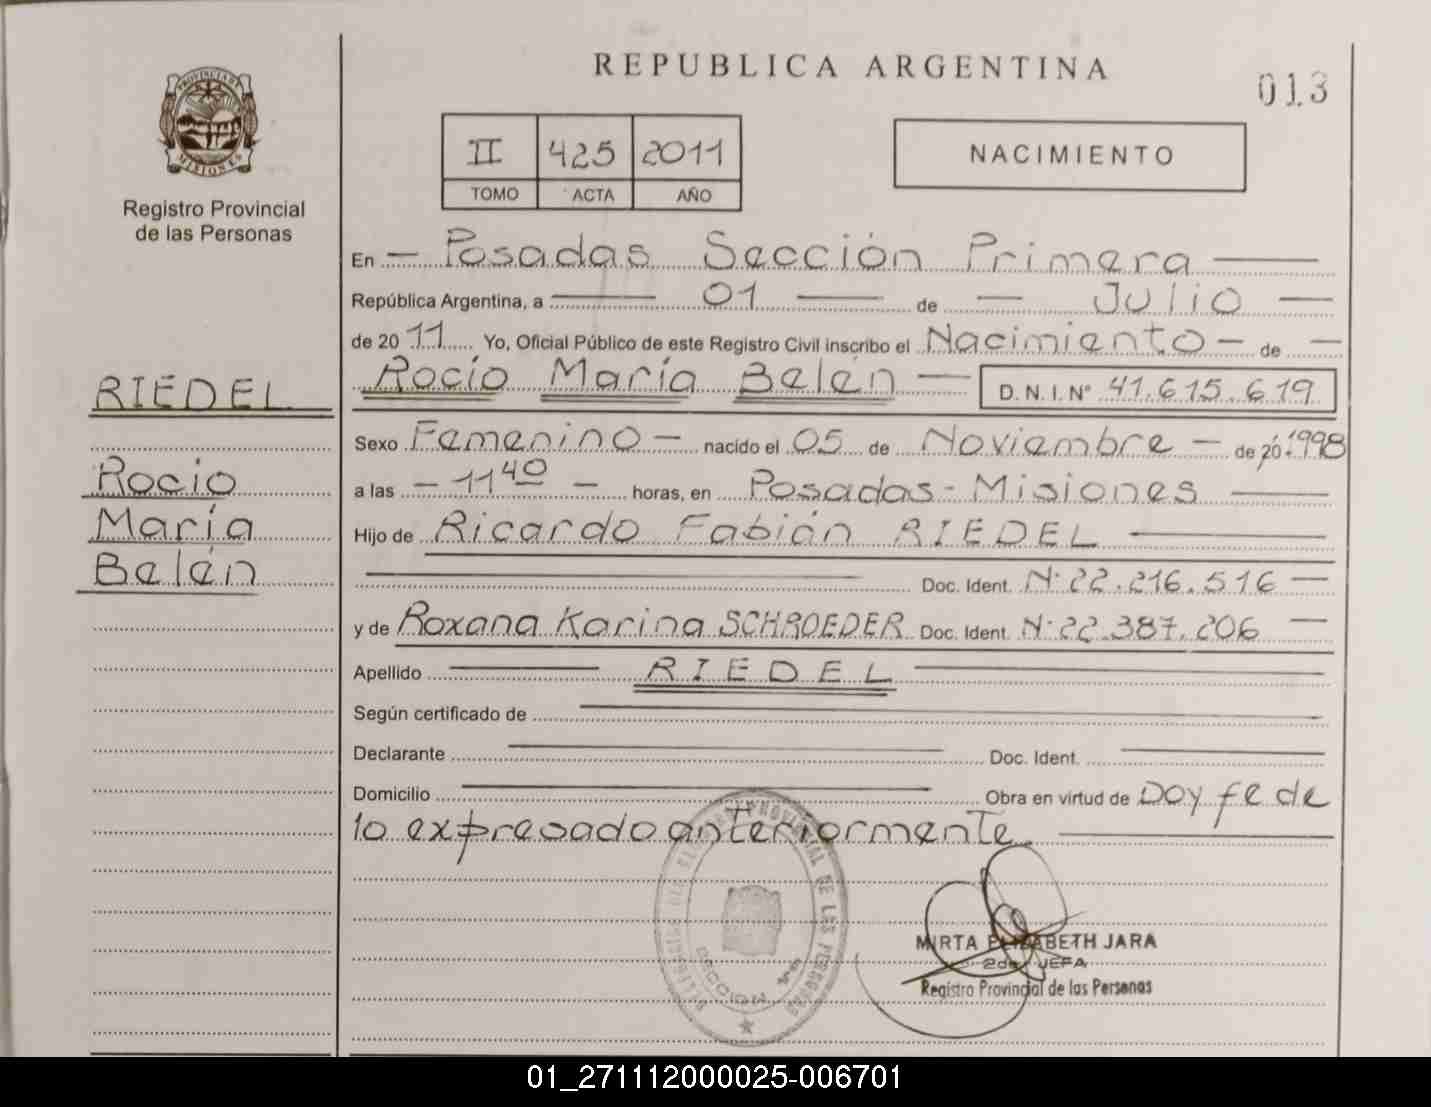 REPUBLICA ARGENTINA
013
PROVINCIA DE
MISIONES
Registro Provincial
de las Personas
II 425 2011
TOMO ACTA AÑO
NACIMIENTO
En — Posadas Sección Primera —
República Argentina, a — 01 — de — Julio —
de 20 11 Yo, Oficial Público de este Registro Civil inscribo el Nacimiento — de —
Rocío María Belén — D. N. I. N° 41.615.619
RIEDEL
Rocío
María
Belén
Sexo Femenino — nacido el 05 de Noviembre — de 20 1998
a las — 11 40 — horas, en Posadas - Misiones —
Hijo de Ricardo Fabián RIEDEL —
— Doc. Ident. N° 22.216.516 —
y de Roxana Karina SCHROEDER Doc. Ident. N° 22.387.206 —
Apellido — RIEDEL —
Según certificado de —
Declarante — Doc. Ident. —
Domicilio — Obra en virtud de Doy fe de
lo expresado anteriormente. —
PROVINCIAL DE LAS PERSONAS
SECCION 1
MIRTA ELIZABETH JARA
2da. JEFA
Registro Provincial de las Personas
01_271112000025-006701